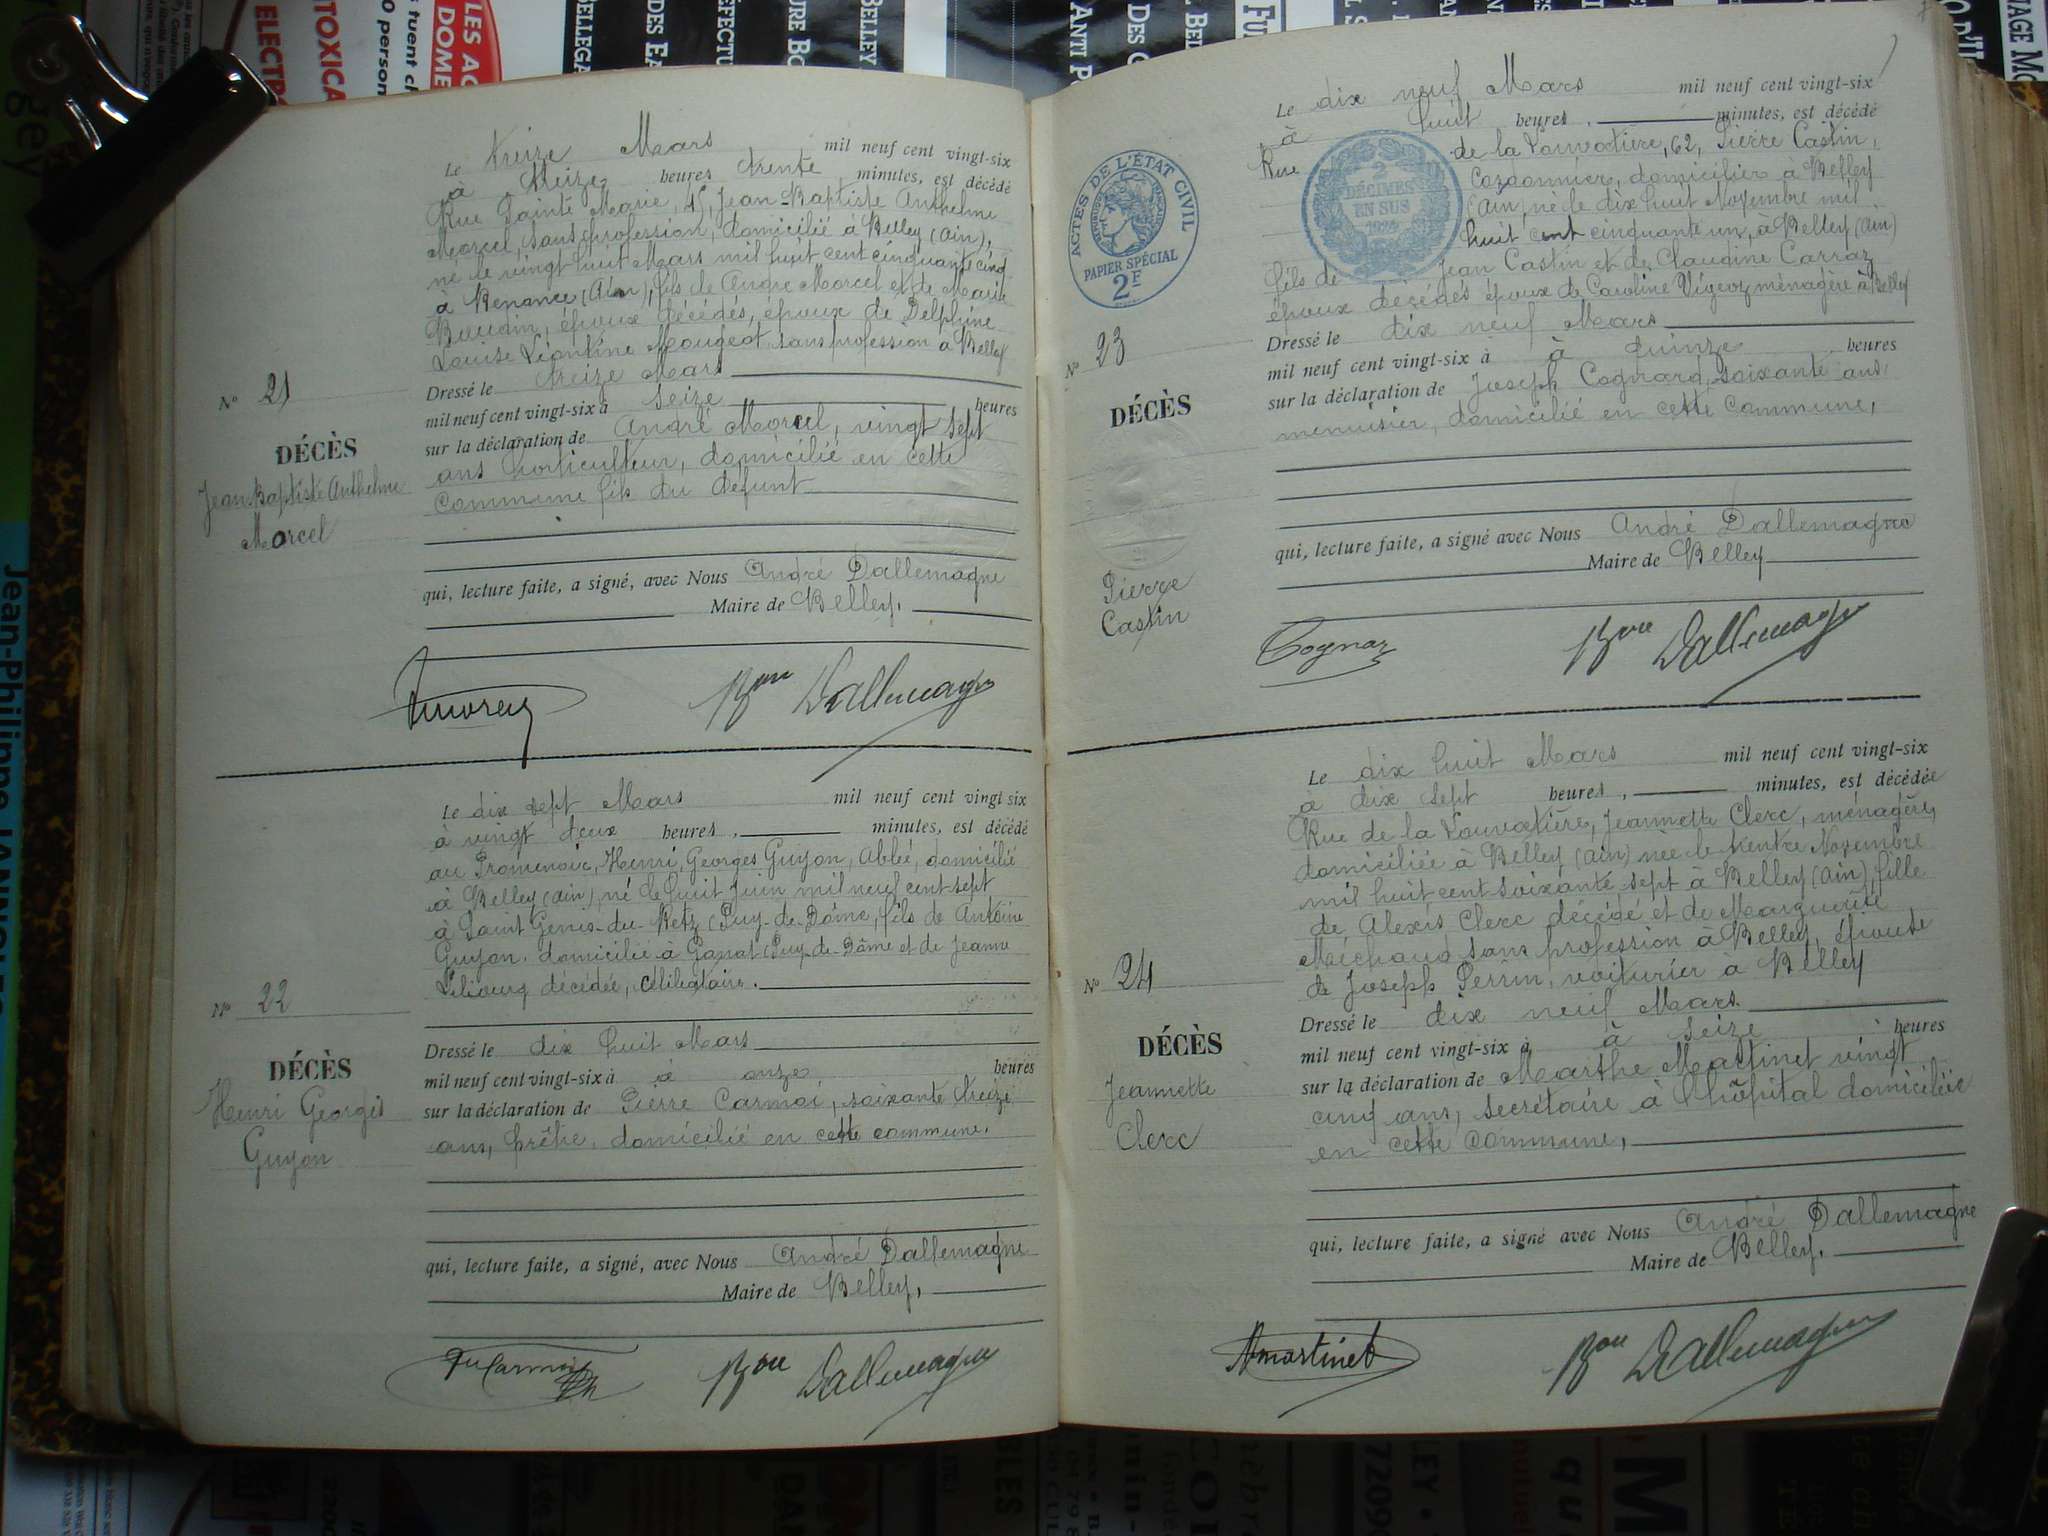 Le treize Mars mil neuf cent vingt-six
à treize heures trente minutes, est décédé
Rue Sainte Marie, 45, Jean-Baptiste Anthelme
Morcel, sans profession, domicilié à Belley (Ain),
né le vingt huit Mars mil huit cent cinquante cinq
à (Ain), fils de André Morcel et de Marie
époux décédés, époux de Delphine
Louise Léontine Mougeot, sans profession à Belley
Dressé le treize Mars
mil neuf cent vingt-six à seize heures
sur la déclaration de André Morcel, vingt sept
ans horticulteur, domicilié en cette
commune fils du défunt
qui, lecture faite, a signé, avec Nous André Dallemagne
Maire de Belley,
N° 21
DÉCÈS
Jean Baptiste Anthelme
Morcel
Bon Dallemagne
Le dix sept Mars mil neuf cent vingt six
à vingt deux heures, minutes, est décédé
au Promenoir, Henri, Georges Guyon, Abbé, domicilié
à Belley (Ain), né le huit Juin mil neuf cent sept
à Saint Genis-du-Retz (Puy-de-Dôme, fils de Antoine
Guyon, domicilié à Gannat (Puy-de-Dôme et de Jeanne
décédée, célibataire.
Dressé le dix huit Mars
mil neuf cent vingt-six à à onze heures
sur la déclaration de Pierre Carmoi, soixante treize
ans, prêtre, domicilié en cette commune.
qui, lecture faite, a signé, avec Nous André Dallemagne
Maire de Belley,
N° 22
DÉCÈS
Henri Georges
Guyon
Bon Dallemagne
Le dix neuf Mars mil neuf cent vingt-six
à huit heures, minutes, est décédé
Rue de la Louvatière, 62, Pierre Castin,
Cordonnier, domicilier à Belley
(Ain, né le dix huit Novembre mil
huit cent cinquante un, à Belley (Ain)
fils de Jean Castin et de Claudine Carraz
époux décédés époux de Caroline Vigeoz ménagère à Belley
Dressé le dix neuf Mars
mil neuf cent vingt-six à à quinze heures
sur la déclaration de Joseph Cognard, soixante ans,
menuisier, domicilié en cette commune,
qui, lecture faite, a signé avec Nous André Dallemagne
Maire de Belley
ACTES DE L'ÉTAT CIVIL
PAPIER SPÉCIAL
2F
2
DÉCIMES
EN SUS
N° 23
DÉCÈS
Pierre
Castin
Cognar
Bon Dallemagne
Le dix huit Mars mil neuf cent vingt-six
à dix sept heures, minutes, est décédée
Rue de la Louvatière, Jeannette Clerc, ménagère,
domiciliée à Belley (Ain) née le trente Novembre
mil huit cent soixante sept à Belley (Ain), fille
de Alexis Clerc décédé et de Marguerite
Méchaud sans profession à Belley, épouse
de Joseph Perrin, voiturier à Belley
Dressé le dix neuf Mars
mil neuf cent vingt-six à à seize heures
sur la déclaration de Marthe Martinet vingt
cinq ans, secrétaire à l'hôpital domiciliée
en cette commune,
qui, lecture faite, a signé avec Nous André Dallemagne
Maire de Belley,
N° 24
DÉCÈS
Jeannette
Clerc
Mmartinet
Bon Dallemagne